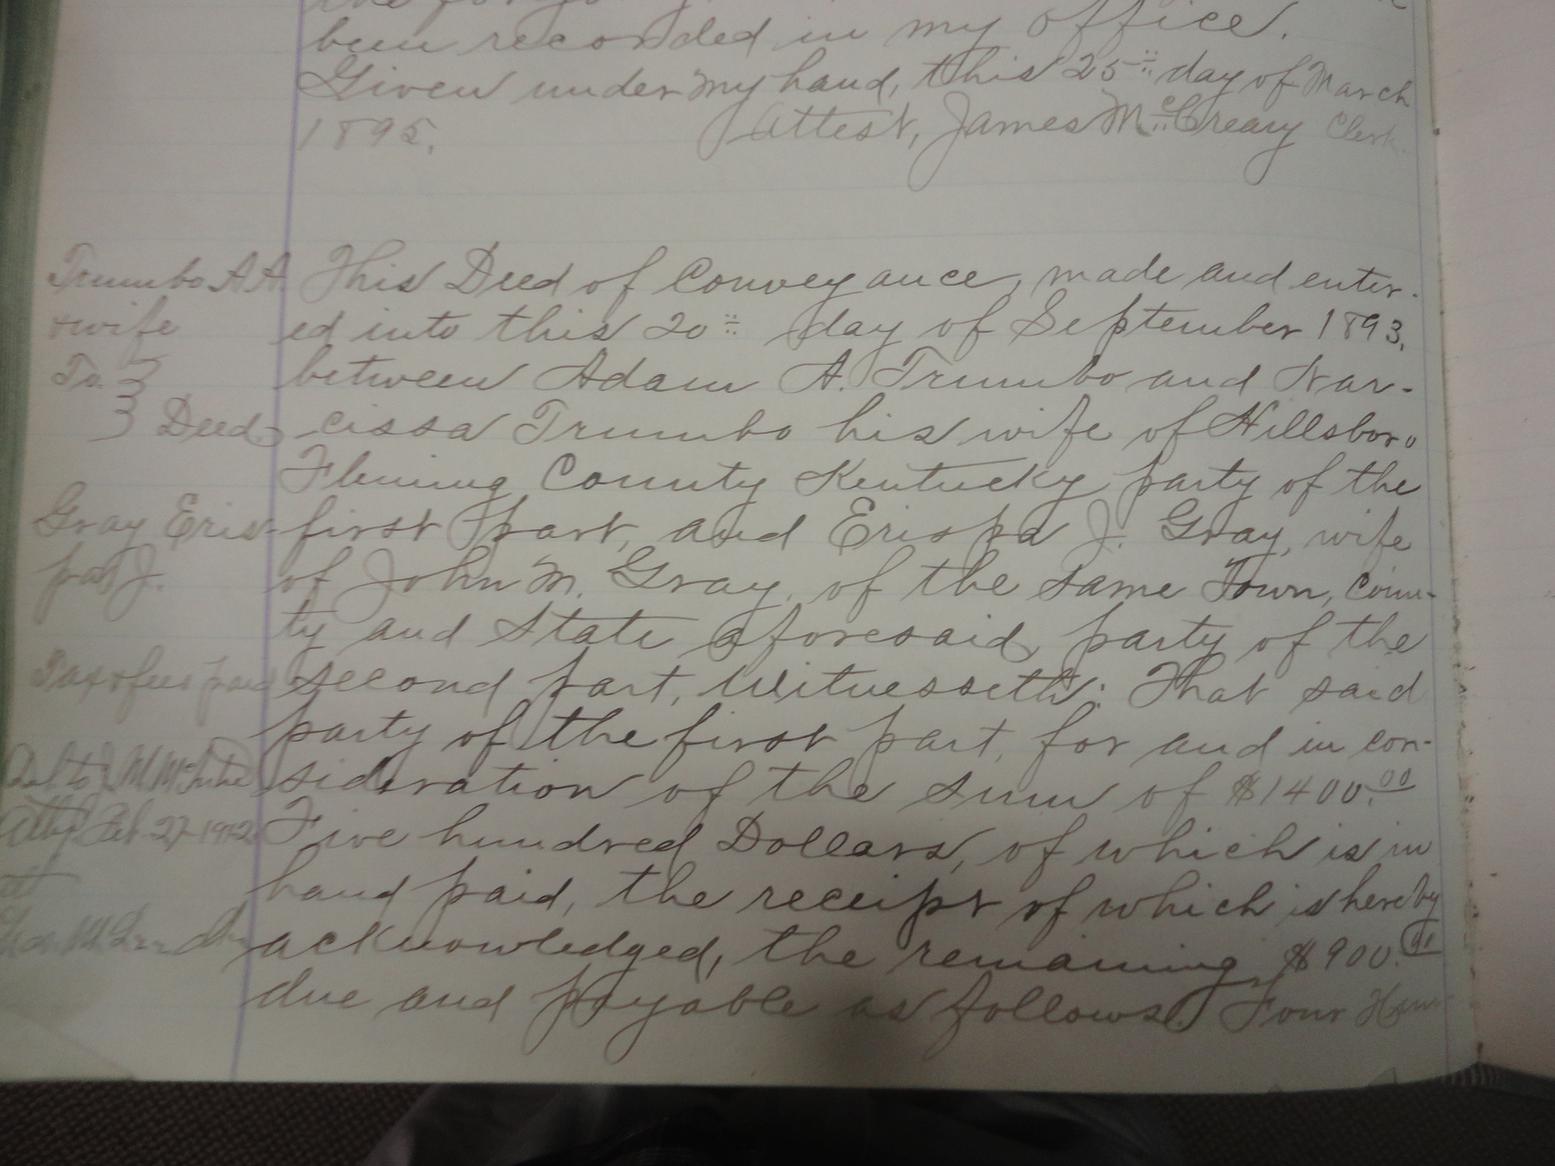 been recorded in my office.
Given under my hand, this 25" day of March
1895. Attest, James McCreary Clerk.
Trumbo A A.
& wife
To
Deed
Gray Eris-
pa J.
Tax & fees paid
Del to
Atty Feb. 27-1912
at
This Deed of Conveyance, made and enter-
ed into this 20" day of September 1893,
between Adam A. Trumbo and Nar-
cissa Trumbo his wife of Hillsboro
Fleming County Kentucky party of the
first part, and Erispa J. Gray, wife
of John M. Gray, of the same Town, Coun-
ty and State aforesaid, party of the
second part, Witnesseth: That said
party of the first part, for and in con-
sideration of the sum of $1400.00
Five hundred Dollars, of which is in
hand paid, the receipt of which is hereby
acknowledged, the remaining $900.
due and payable as follows. Four Hun-